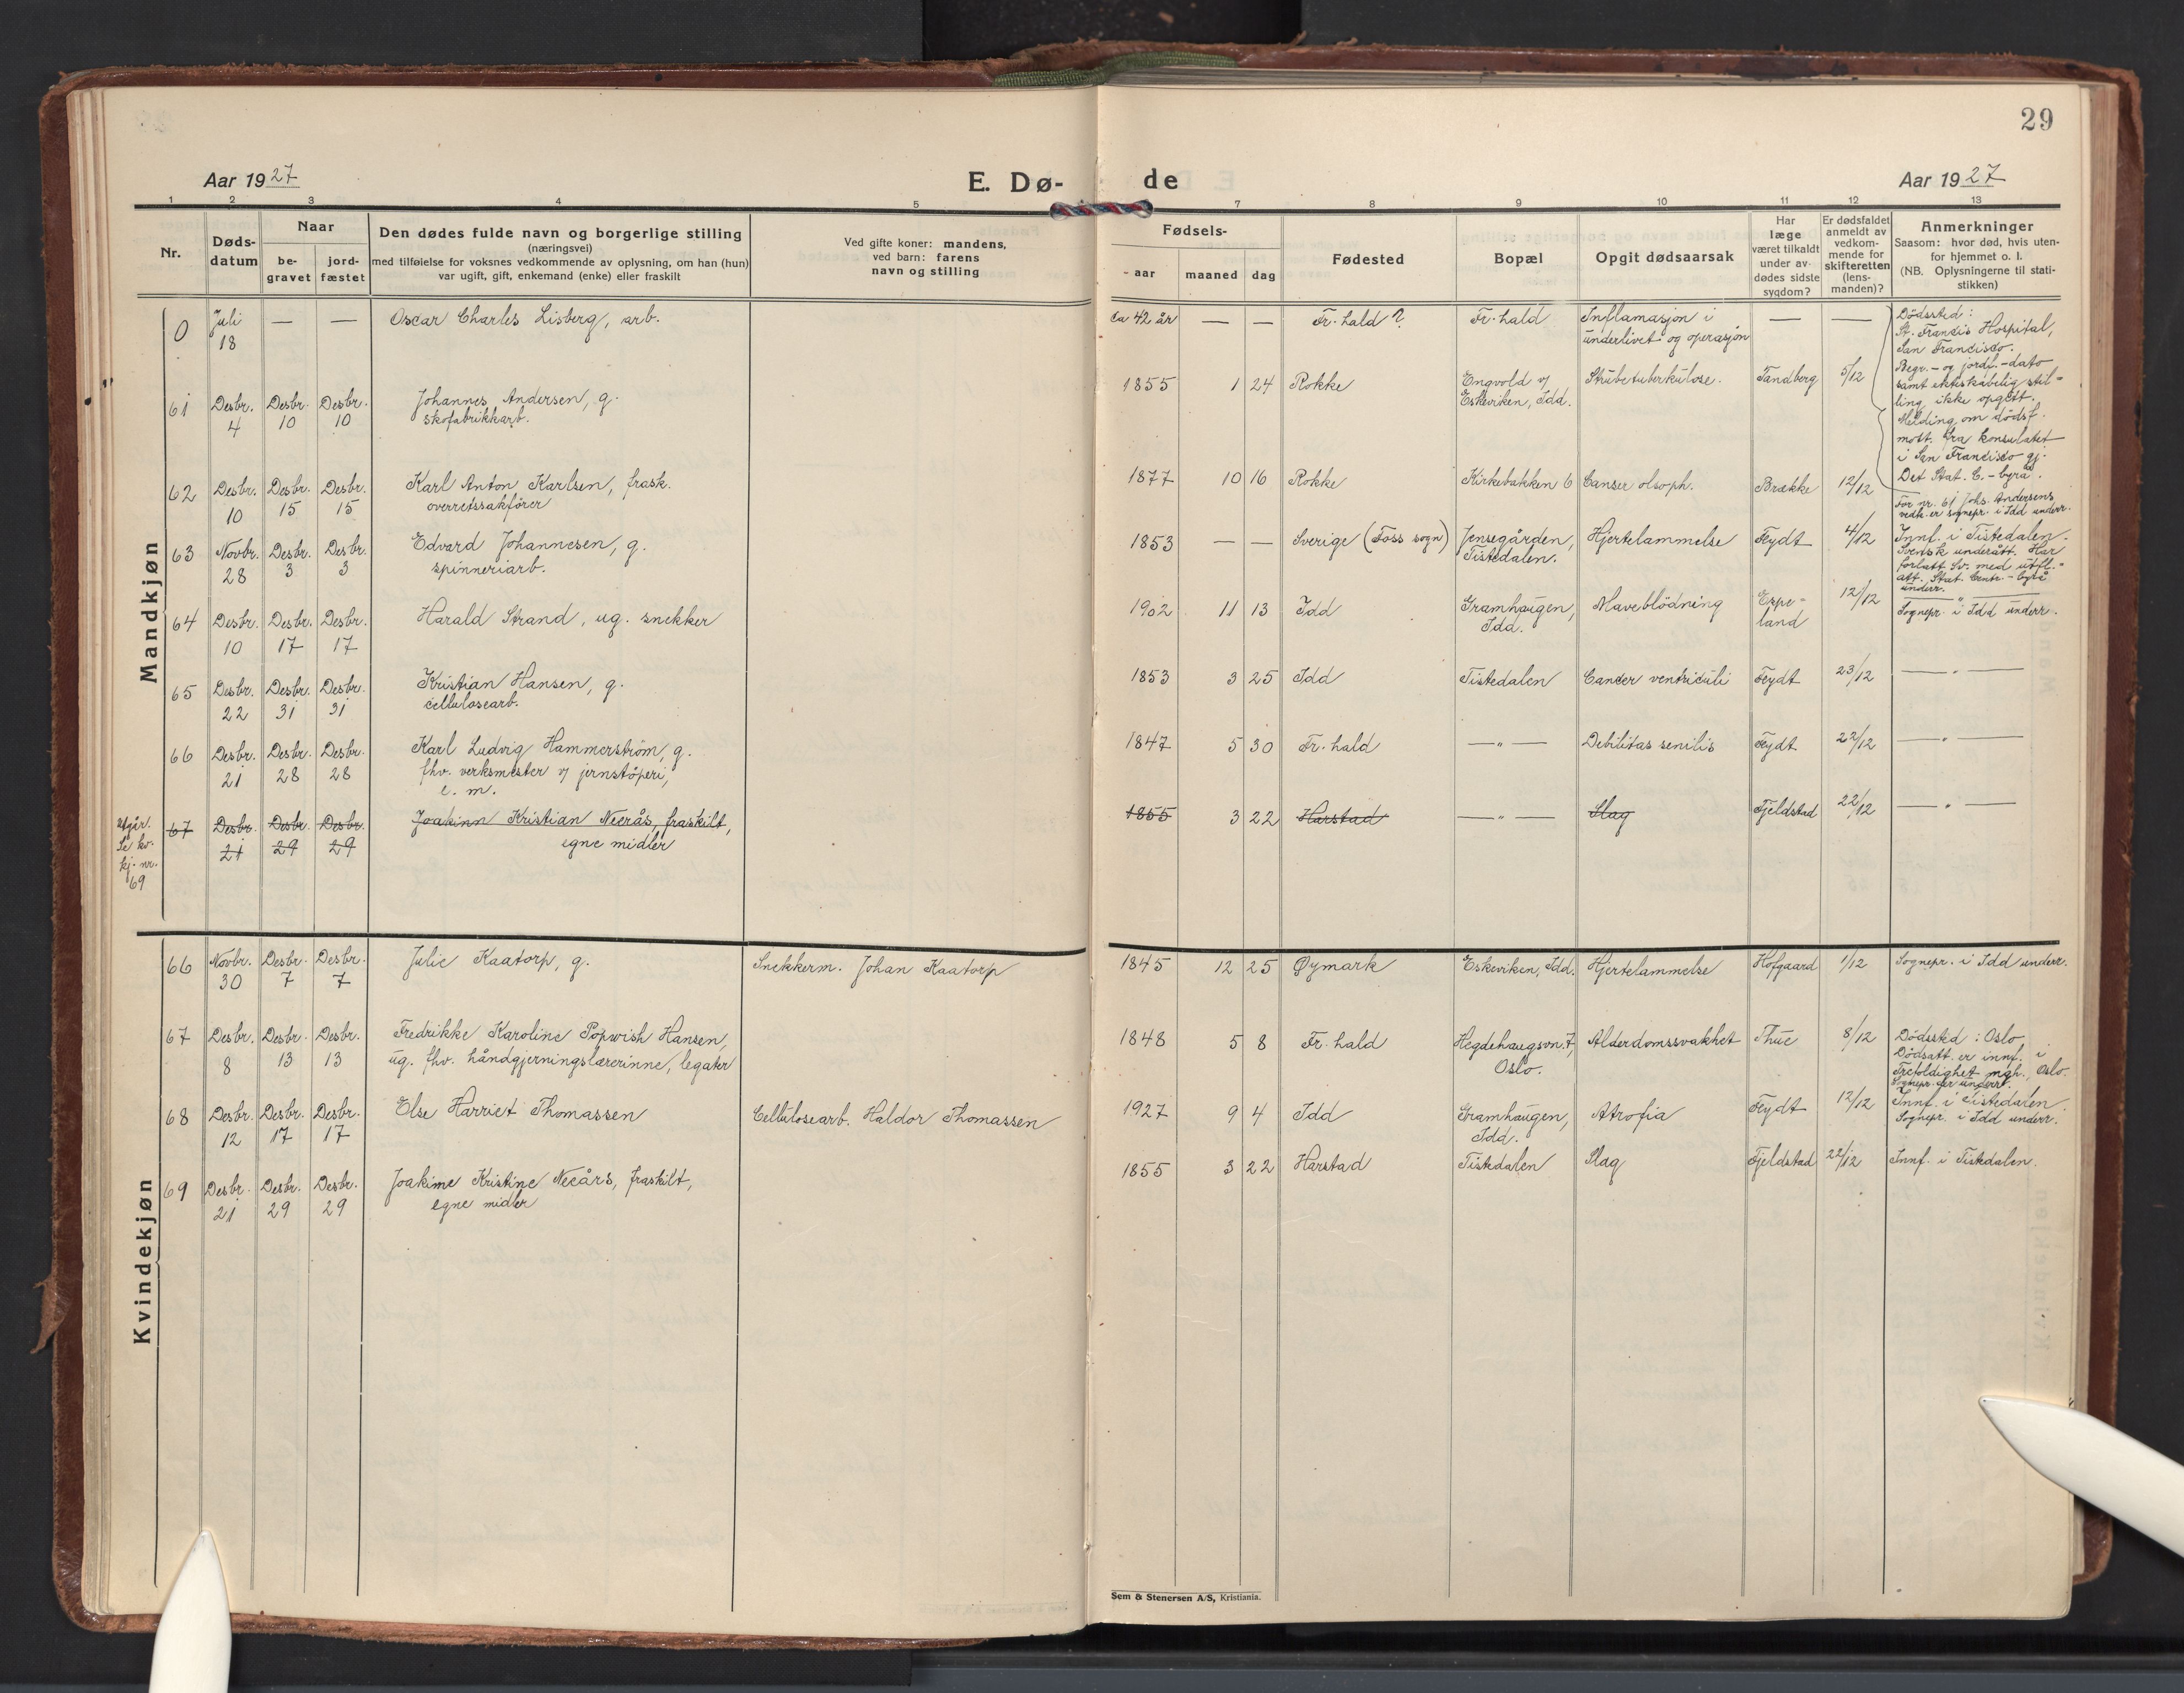 29
Aar 1927
E. Dø-
de
Aar 1927
1 2 3 4 5 7 8 9 10 11 12 13
Nr.
Døds-
datum
Naar
be-
gravet
jord-
fæstet
Den dødes fulde navn og borgerlige stilling
(næringsvei)
med tilføielse for voksnes vedkommende av oplysning, om han (hun)
var ugift, gift, enkemand (enke) eller fraskilt
Ved gifte koner: mandens,
ved barn: farens
navn og stilling
Fødsels-
- aar
maaned
dag
Fødested
Bopæl
Opgit dødsaarsak
Har
læge
været tilkaldt
under av-
dødes sidste
sygdom?
Er dødsfaldet
anmeldt av
vedkom-
mende for
skifteretten
(lens-
manden)?
Anmerkninger
Saasom: hvor død, hvis uten-
for hjemmet o. l.
(NB. Oplysningerne til stati-
stikken)
Mandkjøn
0 Juli — — Oscar Charles Lisberg, arb. ca 42 år — — Fr.hald? Fr.hald Inflamasjon i — — Dødssted:
18 underlivet og operasjon St. Francis Hospital,
San Francisco.
Begr.- og jordf.-dato
samt ekteskabelig stil-
ling ikke opgitt.
Melding om dødsf.
mott. fra konsulatet
i San Francisco gj.
Det Stat. C.-byrå.
61 Desbr. Desbr. Desbr. Johannes Andersen, g. 1855 1 24 Rokke Engvold v/ Strubetuberkulose. Tandberg 5/12
4 10 10 skofabrikkarb. Eskeviken, Idd.
For nr. 61 Johs. Andersens
vedk. er sognepr. i Idd underr.
62 Desbr. Desbr. Desbr. Karl Anton Karlsen, frask. 1877 10 16 Rokke Kirkebakken 6 Canser olsoph. Brække 12/12
10 15 15 overretssakfører
63 Novbr. Desbr. Desbr. Edvard Johannesen, g. 1853 — — Sverige (Foss sogn) Jensegården, Hjertelammelse Feydt 4/12 Innf. i Tistedalen.
28 3 3 spinneriarb. Tistedalen. Svensk undersått. Har
forlatt Sv. med utfl.-
att. Stat. Centr.-byrå
underr.
64 Desbr. Desbr. Desbr. Harald Strand, ug. snekker 1902 11 13 Idd Gramhaugen, Maveblödning Erpe- 12/12 — " —
10 17 17 Idd. land Sognepr. i Idd underr.
65 Desbr. Desbr. Desbr. Kristian Hansen, g. 1853 3 25 Idd Tistedalen Cancer ventriculi Feydt 23/12 — " —
22 31 31 cellulosearb.
66 Desbr. Desbr. Desbr. Karl Ludvig Hammerström, g. 1847 5 30 Fr.hald — " — Debilitas senilis Feydt 22/12 — " —
21 28 28 fhv. verksmester v/ jernstøperi,
e. m.
utgår. 67 Desbr. Desbr. Desbr. Joakinn Kristian Neerås, fraskilt, 1855 3 22 Harstad — " — Slag Fjeldstad 22/12 — " —
Se kv. 21 29 29 egne midler
kj. nr.
69
Kvindekjøn
66 Novbr. Desbr. Desbr. Julie Kaatorp, g. Snekkerm. Johan Kaatorp 1845 12 25 Øymark Eskeviken, Idd. Hjertelammelse Hofgaard 1/12 Sognepr. i Idd underr.
30 7 7
67 Desbr. Desbr. Desbr. Fredrikke Karoline Popwish Hansen, 1848 5 8 Fr.hald Hegdehaugsvn. 7, Alderdomssvakhet Thue 8/12 Dödssted: Oslo
8 13 13 ug. fhv. håndgjerningslærerinne, legater Oslo. Dödsatt. er innf. i
Trefoldighet mgh., Oslo.
Sognepr. der underr.
68 Desbr. Desbr. Desbr. Else Harriet Thomassen Cellulosearb. Haldor Thomassen 1927 9 4 Idd Gramhaugen, Atrofia Feydt 12/12 Innf. i Tistedalen
12 17 17 Idd. Sognepr. i Idd underr.
69 Desbr. Desbr. Desbr. Joakime Kristine Neeårs, fraskilt, 1855 3 22 Harstad Tistedalen Slag Fjeldstad 22/12 Innf. i Tistedalen.
21 29 29 egne midler
Sem & Stenersen A/S, Kristiania.